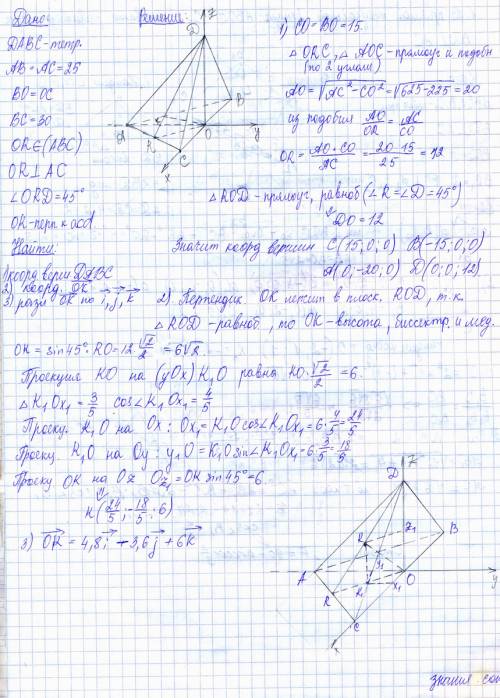 Дано:
DABC-тетр.
AB=AC=25
BO=OC
BC=30
OR∈(ABC)
OR⊥AC
∠ORD=45°
OK-перп к acd
Найти:
1) коорд верш DABC
2) коорд. OK
3) разл OK по i, j, k
Решение:
z
D
B
A
R
O
y
C
x
1) CO=BO=15.
△ORC, △AOC-прямоуг и подобн
(по 2 углам)
AO=√AC²-CO²=√625-225=20
из подобия AO/OR=AC/CO
OR=AO·CO/AC=20·15/25=12
△ROD-прямоуг, равноб (∠R=∠D=45°)
DO=12
Значит коорд вершин C(15;0;0) B(-15;0;0)
A(0;-20;0) D(0;0;12)
2) Перпендик OK лежит в плоск. ROD, т.к.
△ROD-равноб, то OK-высота, биссектр. и мед.
OK=sin45°·RO=12·√2/2=6√2.
Проекция KO на (yOx) K₁O равна KO·√2/2=6.
∠K₁Ox₁=3/5 cos∠K₁Ox₁=4/5
Проекц. K₁O на Ox: Ox₁=K₁Ocos∠K₁Ox₁=6·4/5=24/5
Проекц K₁O на Oy: y₁O=K₁Osin∠K₁Ox₁=6·3/5=18/5
Проекц OK на Oz Oz₁=OKsin45°=6.
K(24/5;-18/5;6)
3) OK=4,8i-3,6j+6k
z
D
B
K
z₁
y₁
A
O
y
R
K₁
x₁
C
x